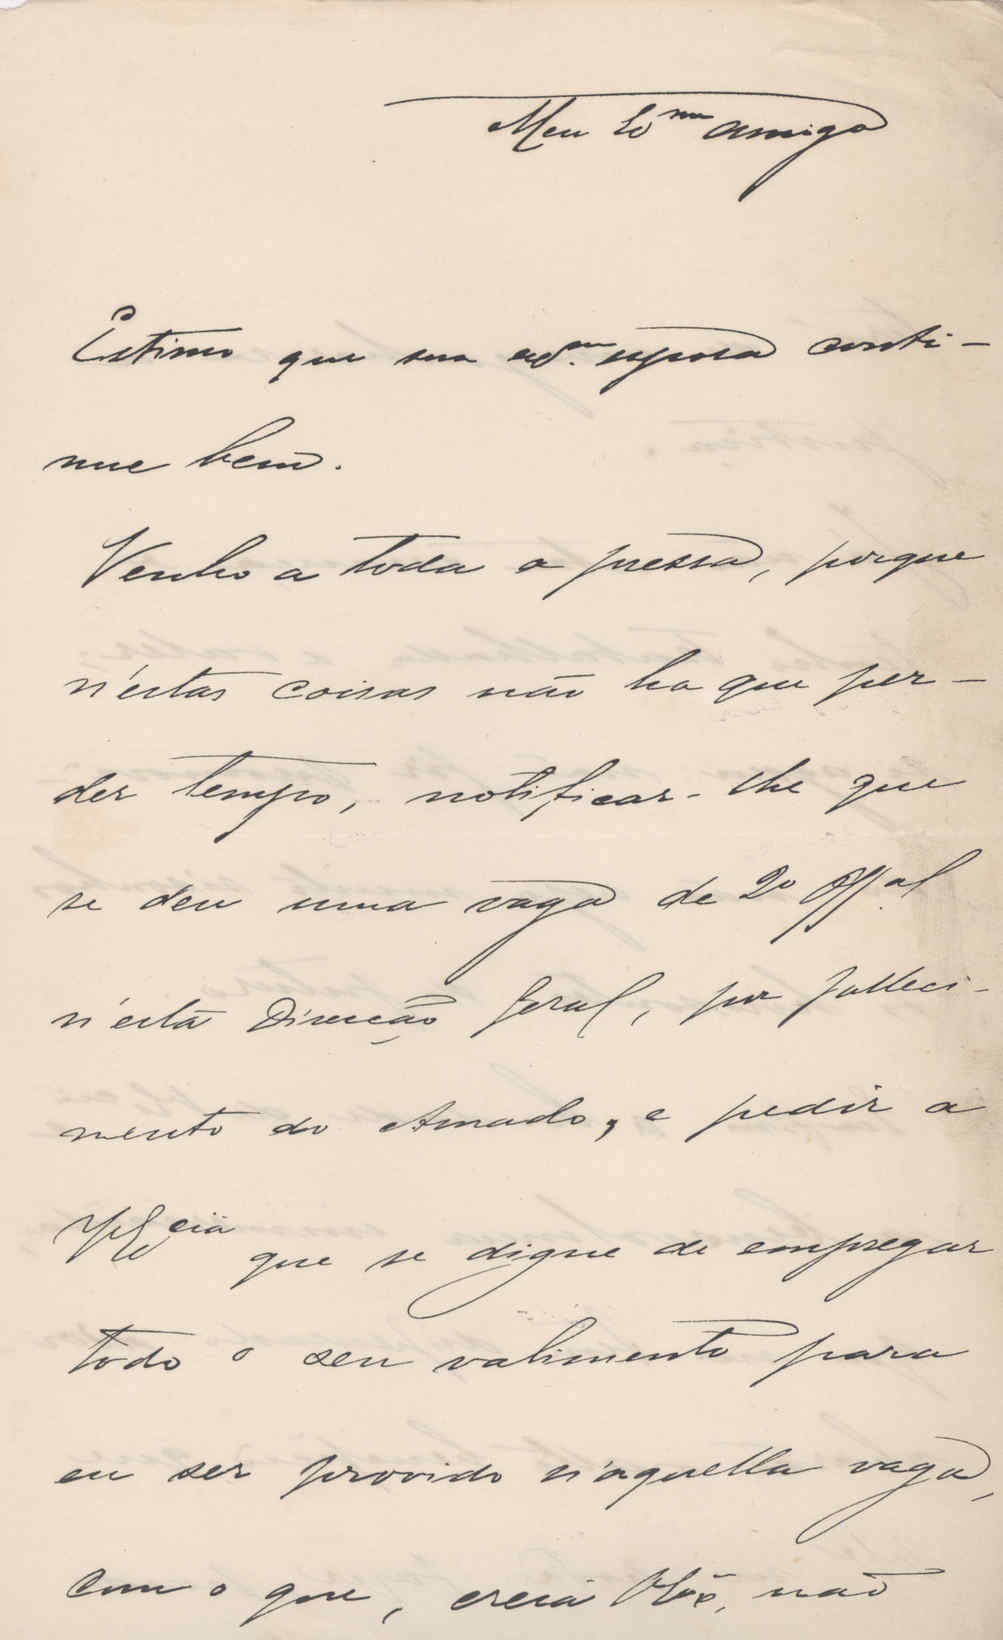 Meu Ex.mo amigo
Estimo que sua ex.ma esposa conti-
nue bem.
Venho a toda a pressa, porque
n'estas coisas não ha que per-
der tempo, notificar-lhe que
se deu uma vaga de 2º Off.al
n'esta Direcção Geral, por falleci-
mento do Amado, e pedir a
V. Ex.cia que se digne de empregar
todo o seu valimento para
eu ser provido n'aquella vaga,
com o que, creia não